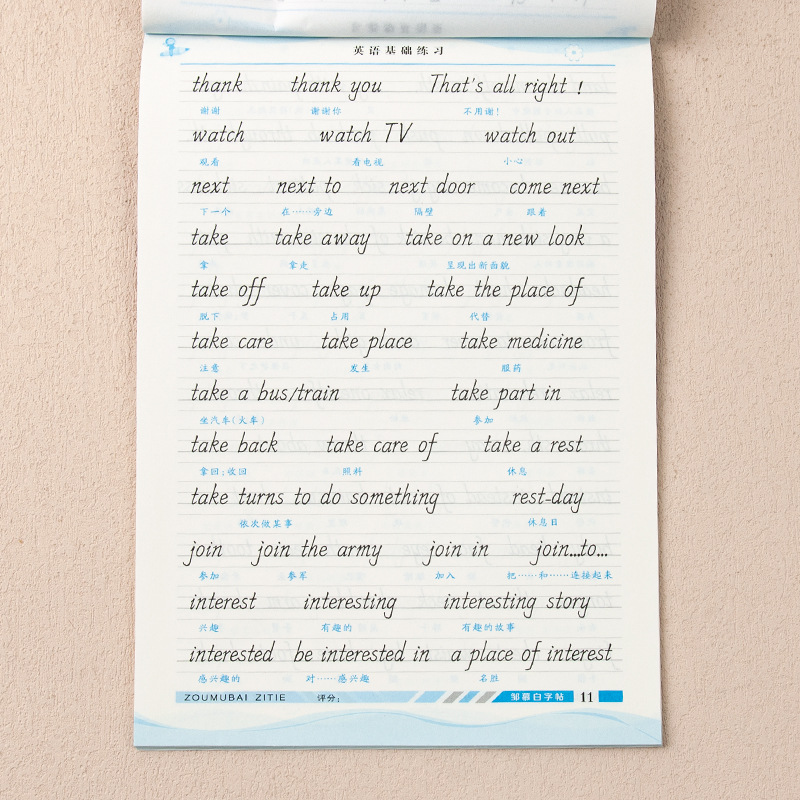 英语基础练习
thank thank you That's all right !
谢谢 谢谢你 不用谢!
watch watch TV watch out
观看 看电视 小心
next next to next door come next
下一个 在……旁边 隔壁 跟着
take take away take on a new look
拿 拿走 呈现出新面貌
take off take up take the place of
脱下 占用 代替
take care take place take medicine
注意 发生 服药
take a bus/train take part in
坐汽车(火车) 参加
take back take care of take a rest
拿回;收回 照料 休息
take turns to do something rest-day
依次做某事 休息日
join join the army join in join...to...
参加 参军 加入 把……和……连接起来
interest interesting interesting story
兴趣 有趣的 有趣的故事
interested be interested in a place of interest
感兴趣的 对……感兴趣 名胜
ZOUMUBAI ZITIE 评分: 邹慕白字帖 11